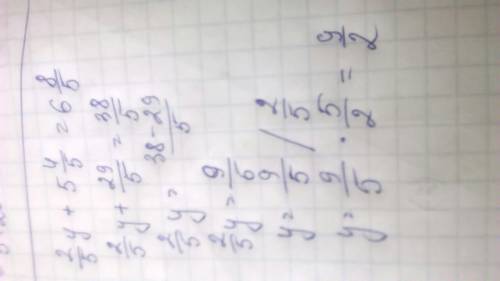 2/5 y + 5 4/5 = 6 8/5
2/5 y + 29/5 = 38/5
2/5 y = (38-29)/5
2/5 y = 9/6
y = 9/5 / 2/5
y = 9/5 · 5/2 = 9/2